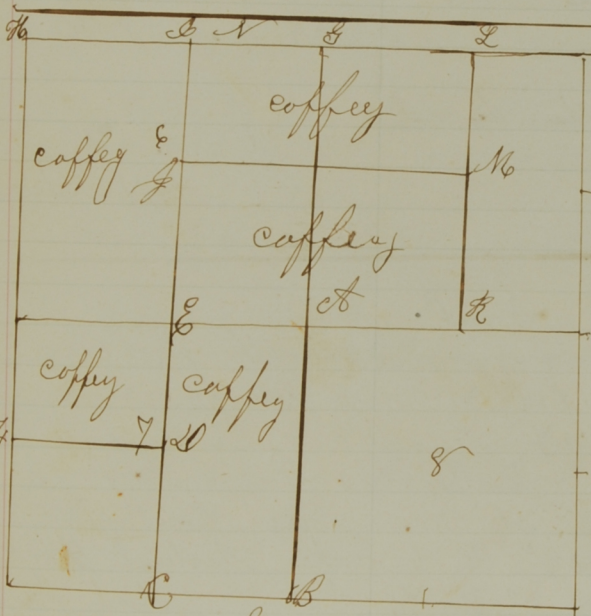 H I N G L
coffey
coffey E
J M
coffey
A K
E
coffey coffey
7 D
8
C B